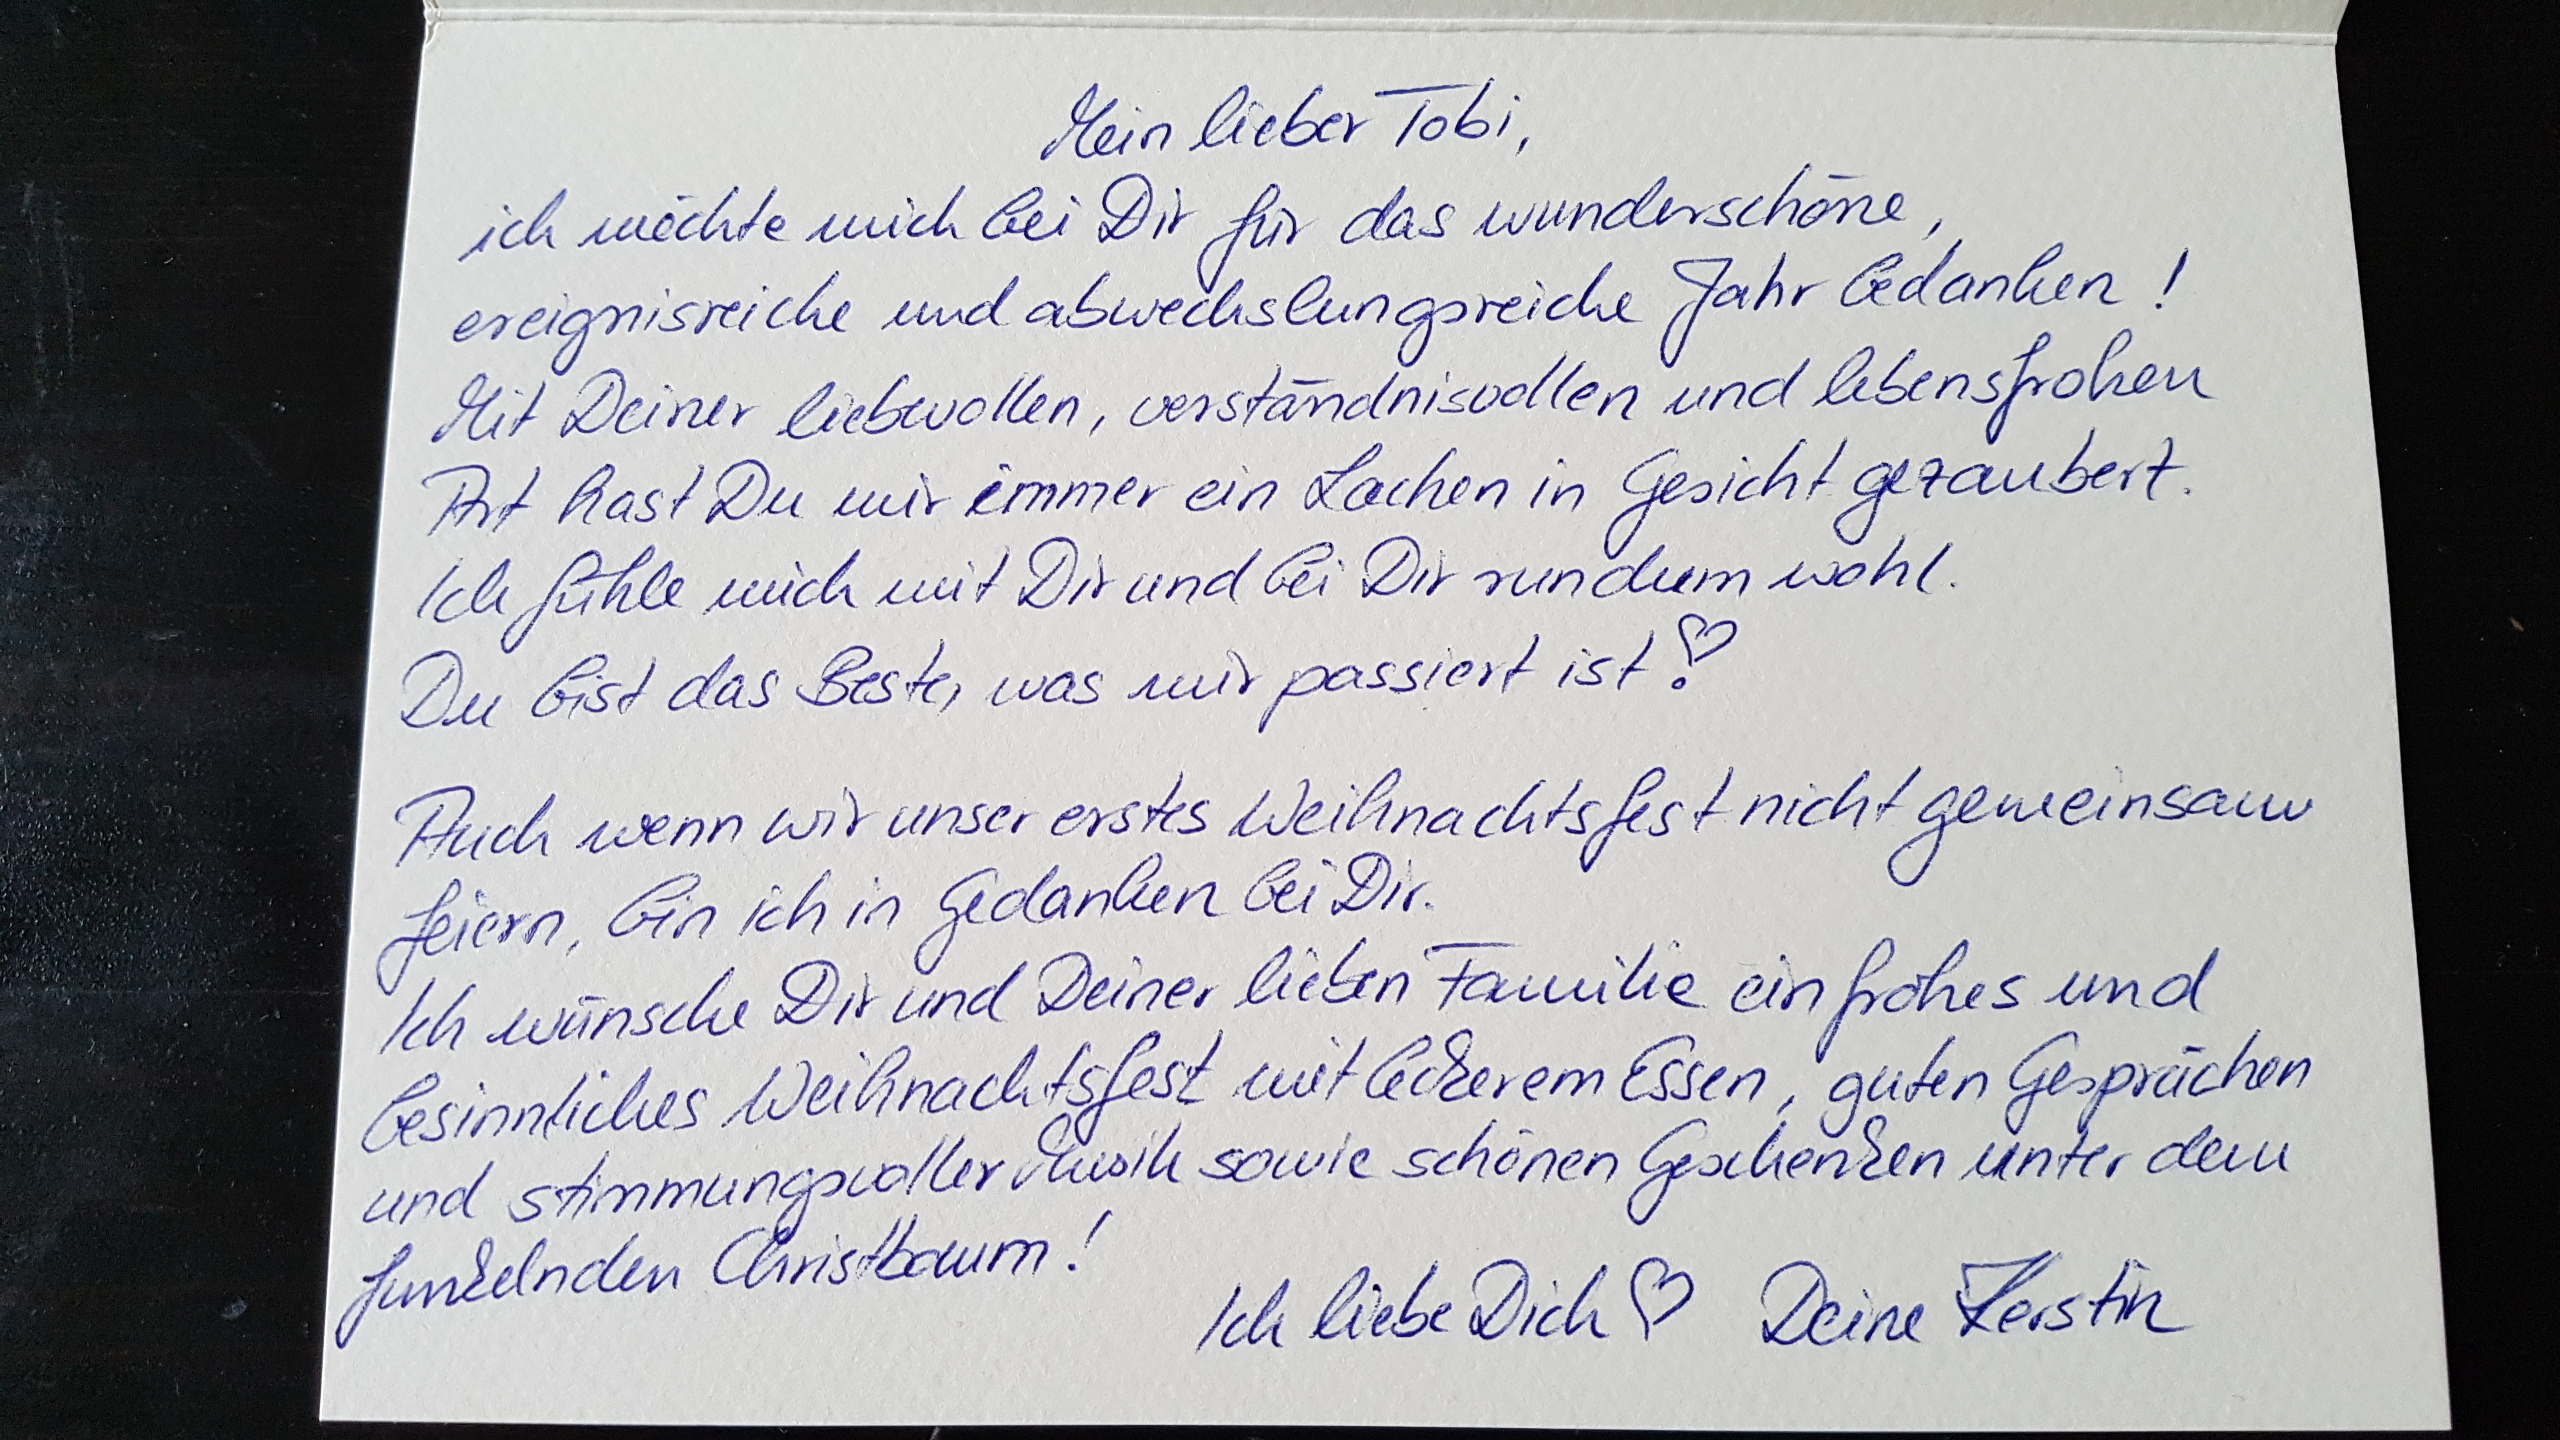 Mein lieber Tobi,
ich möchte mich bei Dir für das wunderschöne,
ereignisreiche und abwechslungsreiche Jahr bedanken!
Mit Deiner liebevollen, verständnisvollen und lebensfrohen
Art hast Du mir immer ein Lachen in Gesicht gezaubert.
Ich fühle mich mit Dir und bei Dir rundum wohl.
Du bist das Beste, was mir passiert ist!
Auch wenn wir unser erstes Weihnachtsfest nicht gemeinsam
feiern, bin ich in Gedanken bei Dir.
Ich wünsche Dir und Deiner lieben Familie ein frohes und
besinnliches Weihnachtsfest mit leckerem Essen, guten Gesprächen
und stimmungsvoller Musik sowie schönen Geschenken unter dem
funkelnden Christbaum!
Ich liebe Dich ♡ Deine Kerstin